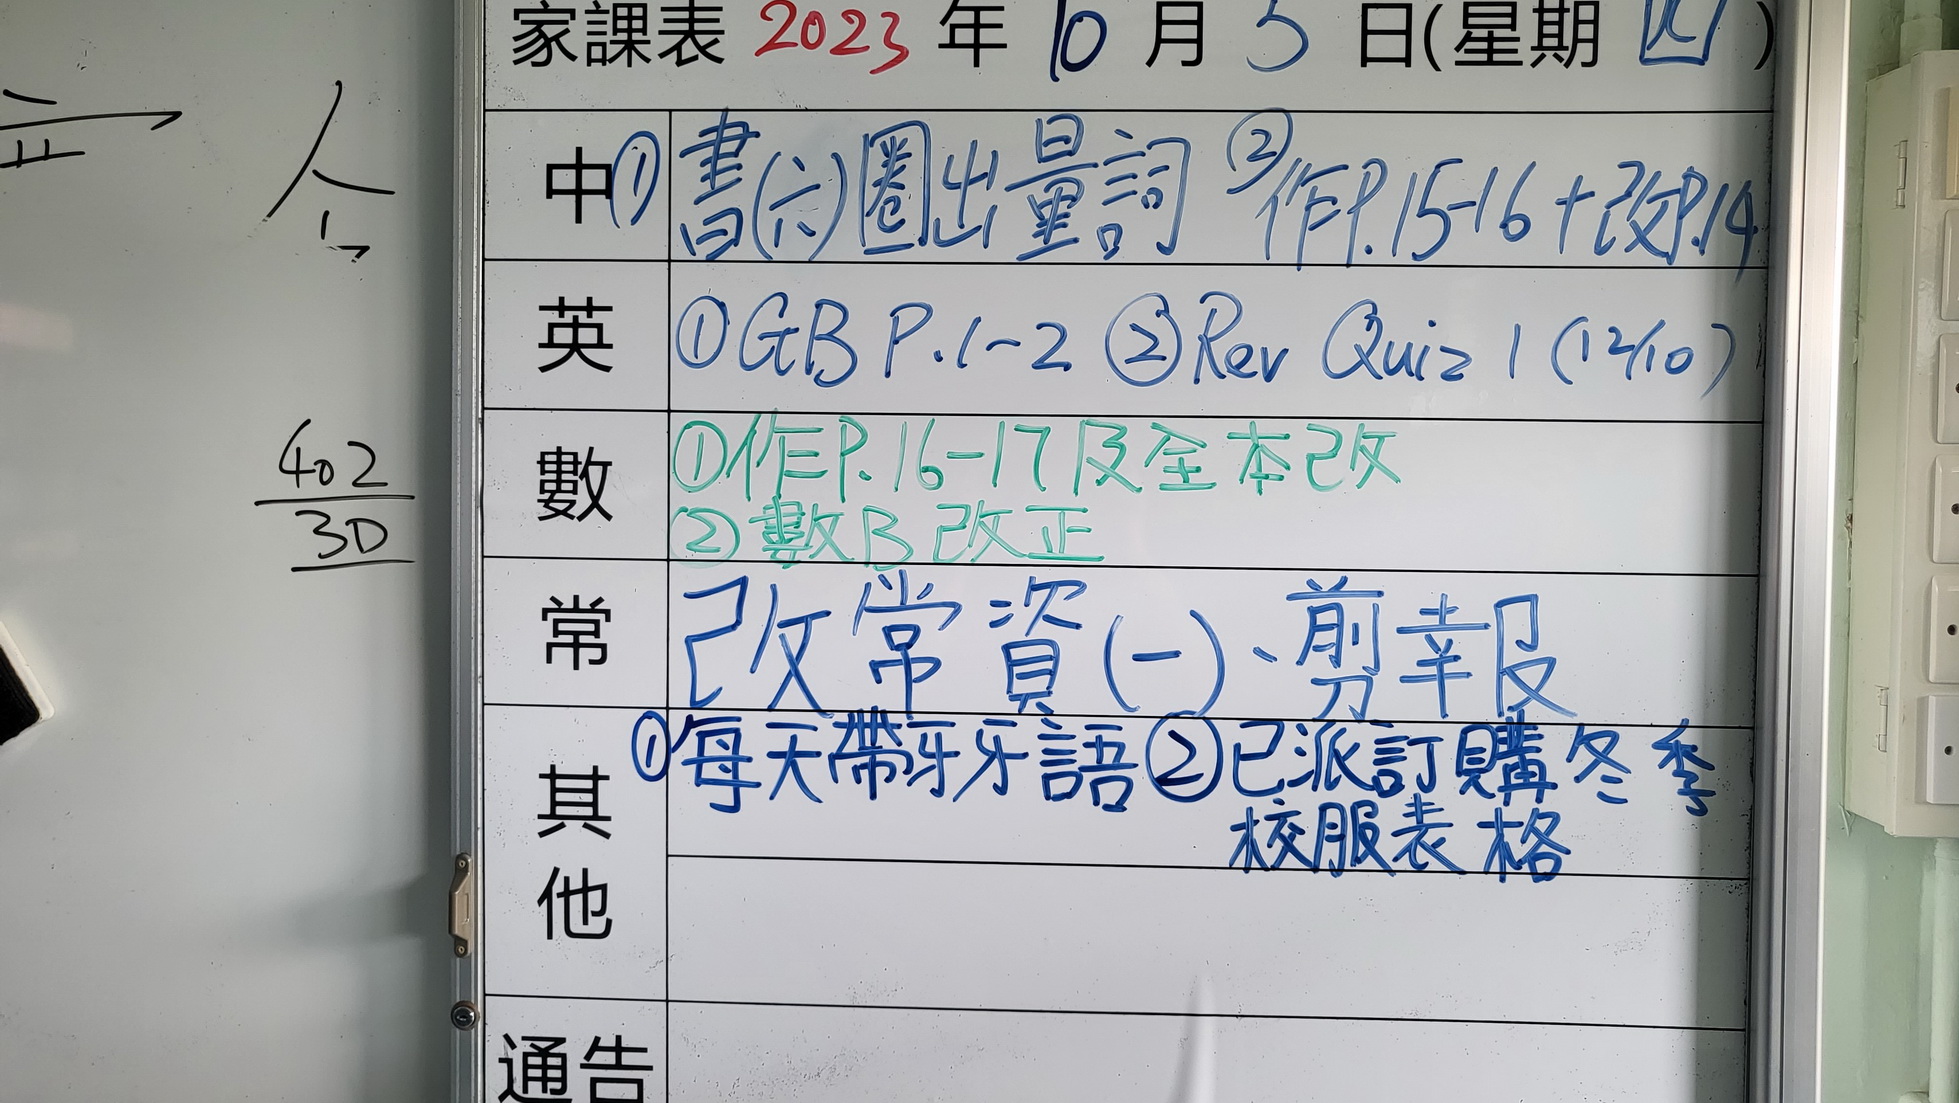 家課表 2023 年 10 月 5 日(星期 四)
中 ①書(六)圈出量詞 ②作P.15-16+改P.14
英 ①GB P.1-2 ②Rev Quiz 1 (12/10)
數 ①作P.16-17及全本改
②數B改正
常 改常資(一)、剪報
其他 ①每天帶牙牙語②已派訂購冬季
校服表格
通告
402
30